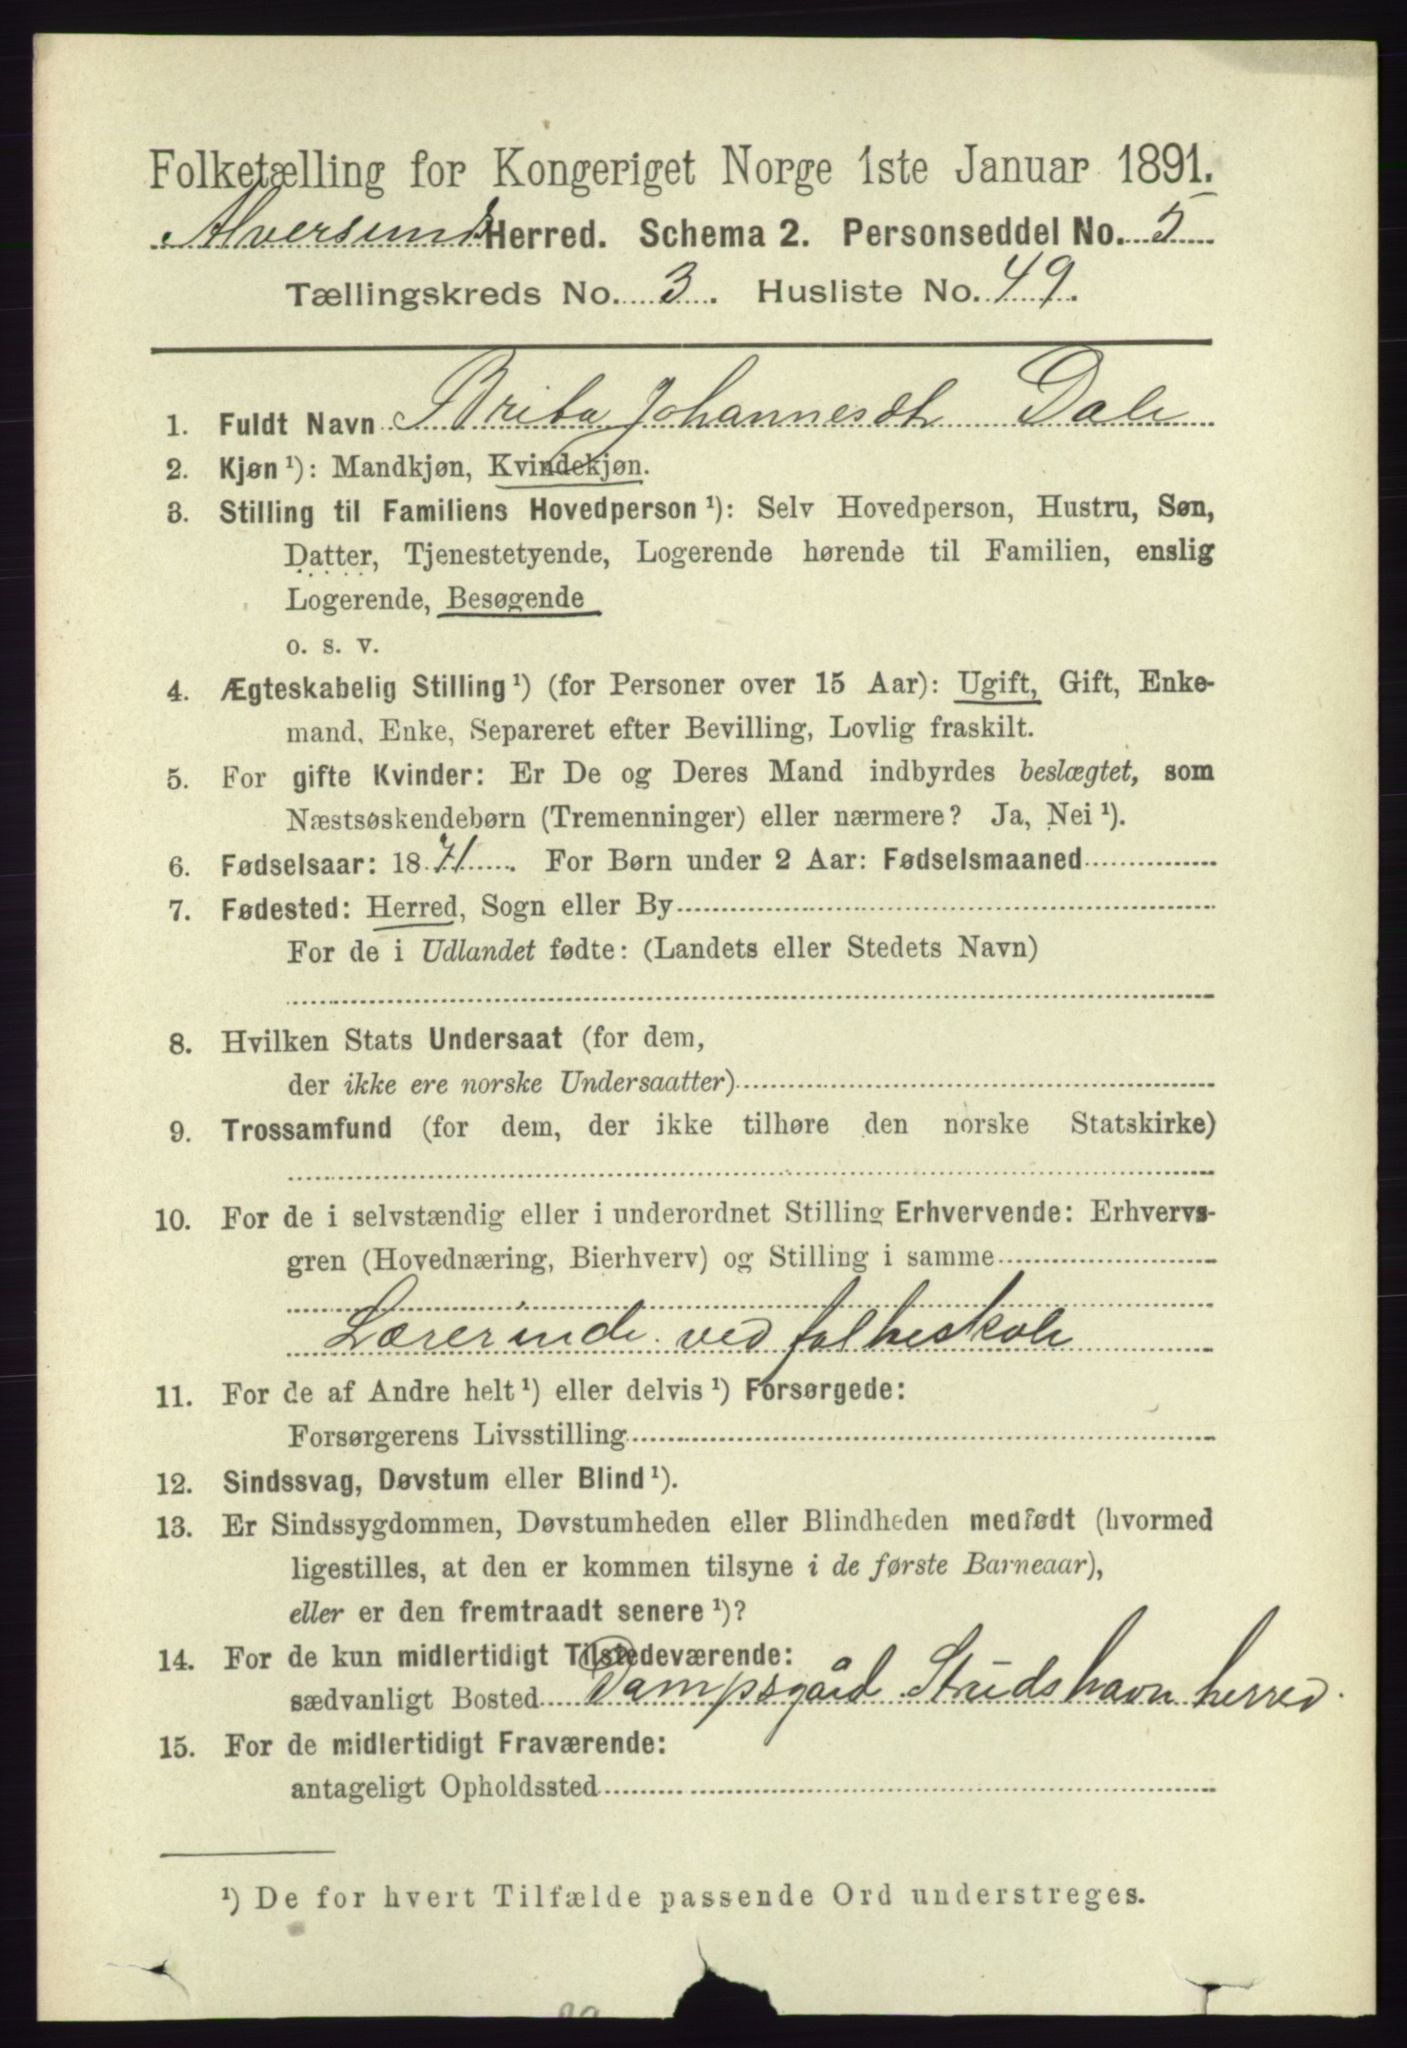 Folketælling for Kongeriget Norge 1ste Januar 1891.
Alversunds Herred. Schema 2. Personseddel No. 5
Tællingskreds No. 3. Husliste No. 49.
1. Fuldt Navn Brita Johannesdt Dale
2. Kjøn ¹): Mandkjøn, Kvindekjøn.
3. Stilling til Familiens Hovedperson ¹): Selv Hovedperson, Hustru, Søn,
Datter, Tjenestetyende, Logerende hørende til Familien, enslig
Logerende, Besøgende
o. s. v.
4. Ægteskabelig Stilling ¹) (for Personer over 15 Aar): Ugift, Gift, Enke-
mand, Enke, Separeret efter Bevilling, Lovlig fraskilt.
5. For gifte Kvinder: Er De og Deres Mand indbyrdes beslægtet, som
Næstsøskendebørn (Tremenninger) eller nærmere? Ja, Nei ¹).
6. Fødselsaar: 1871. For Børn under 2 Aar: Fødselsmaaned
7. Fødested: Herred, Sogn eller By
For de i Udlandet fødte: (Landets eller Stedets Navn)
8. Hvilken Stats Undersaat (for dem,
der ikke ere norske Undersaatter)
9. Trossamfund (for dem, der ikke tilhøre den norske Statskirke)
10. For de i selvstændig eller i underordnet Stilling Erhvervende: Erhvervs-
gren (Hovednæring, Bierhverv) og Stilling i samme
Lærerinde ved folkeskole
11. For de af Andre helt ¹) eller delvis ¹) Forsørgede:
Forsørgerens Livsstilling
12. Sindssvag, Døvstum eller Blind ¹).
13. Er Sindssygdommen, Døvstumheden eller Blindheden medfødt (hvormed
ligestilles, at den er kommen tilsyne i de første Barneaar),
eller er den fremtraadt senere ¹)?
14. For de kun midlertidigt Tilstedeværende:
sædvanligt Bosted Dampsgård Strudshavn herred.
15. For de midlertidigt Fraværende:
antageligt Opholdssted
¹) De for hvert Tilfælde passende Ord understreges.